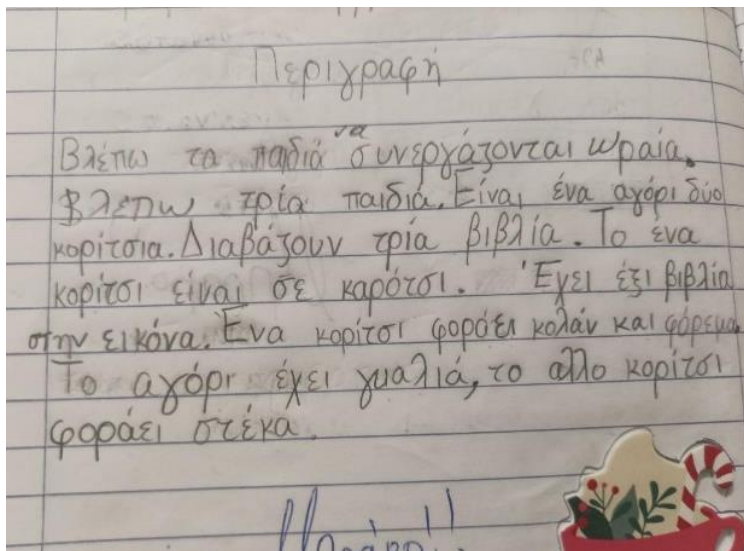 Περιγραφή
Βλέπω τα παδιά να συνεργάζονται ωραία.
Βλέπω τρία παιδιά. Είναι ένα αγόρι δύο
κορίτσια. Διαβάζουν τρία βιβλία. Το ενα
κορίτσι είναι σε καρότσι. Έχει έξι βιβλία
στην εικόνα. Ένα κορίτσι φοράει κολάν και φόρεμα.
Το αγόρι έχει γυαλιά, το αλλο κορίτσι
φοράει στέκα.